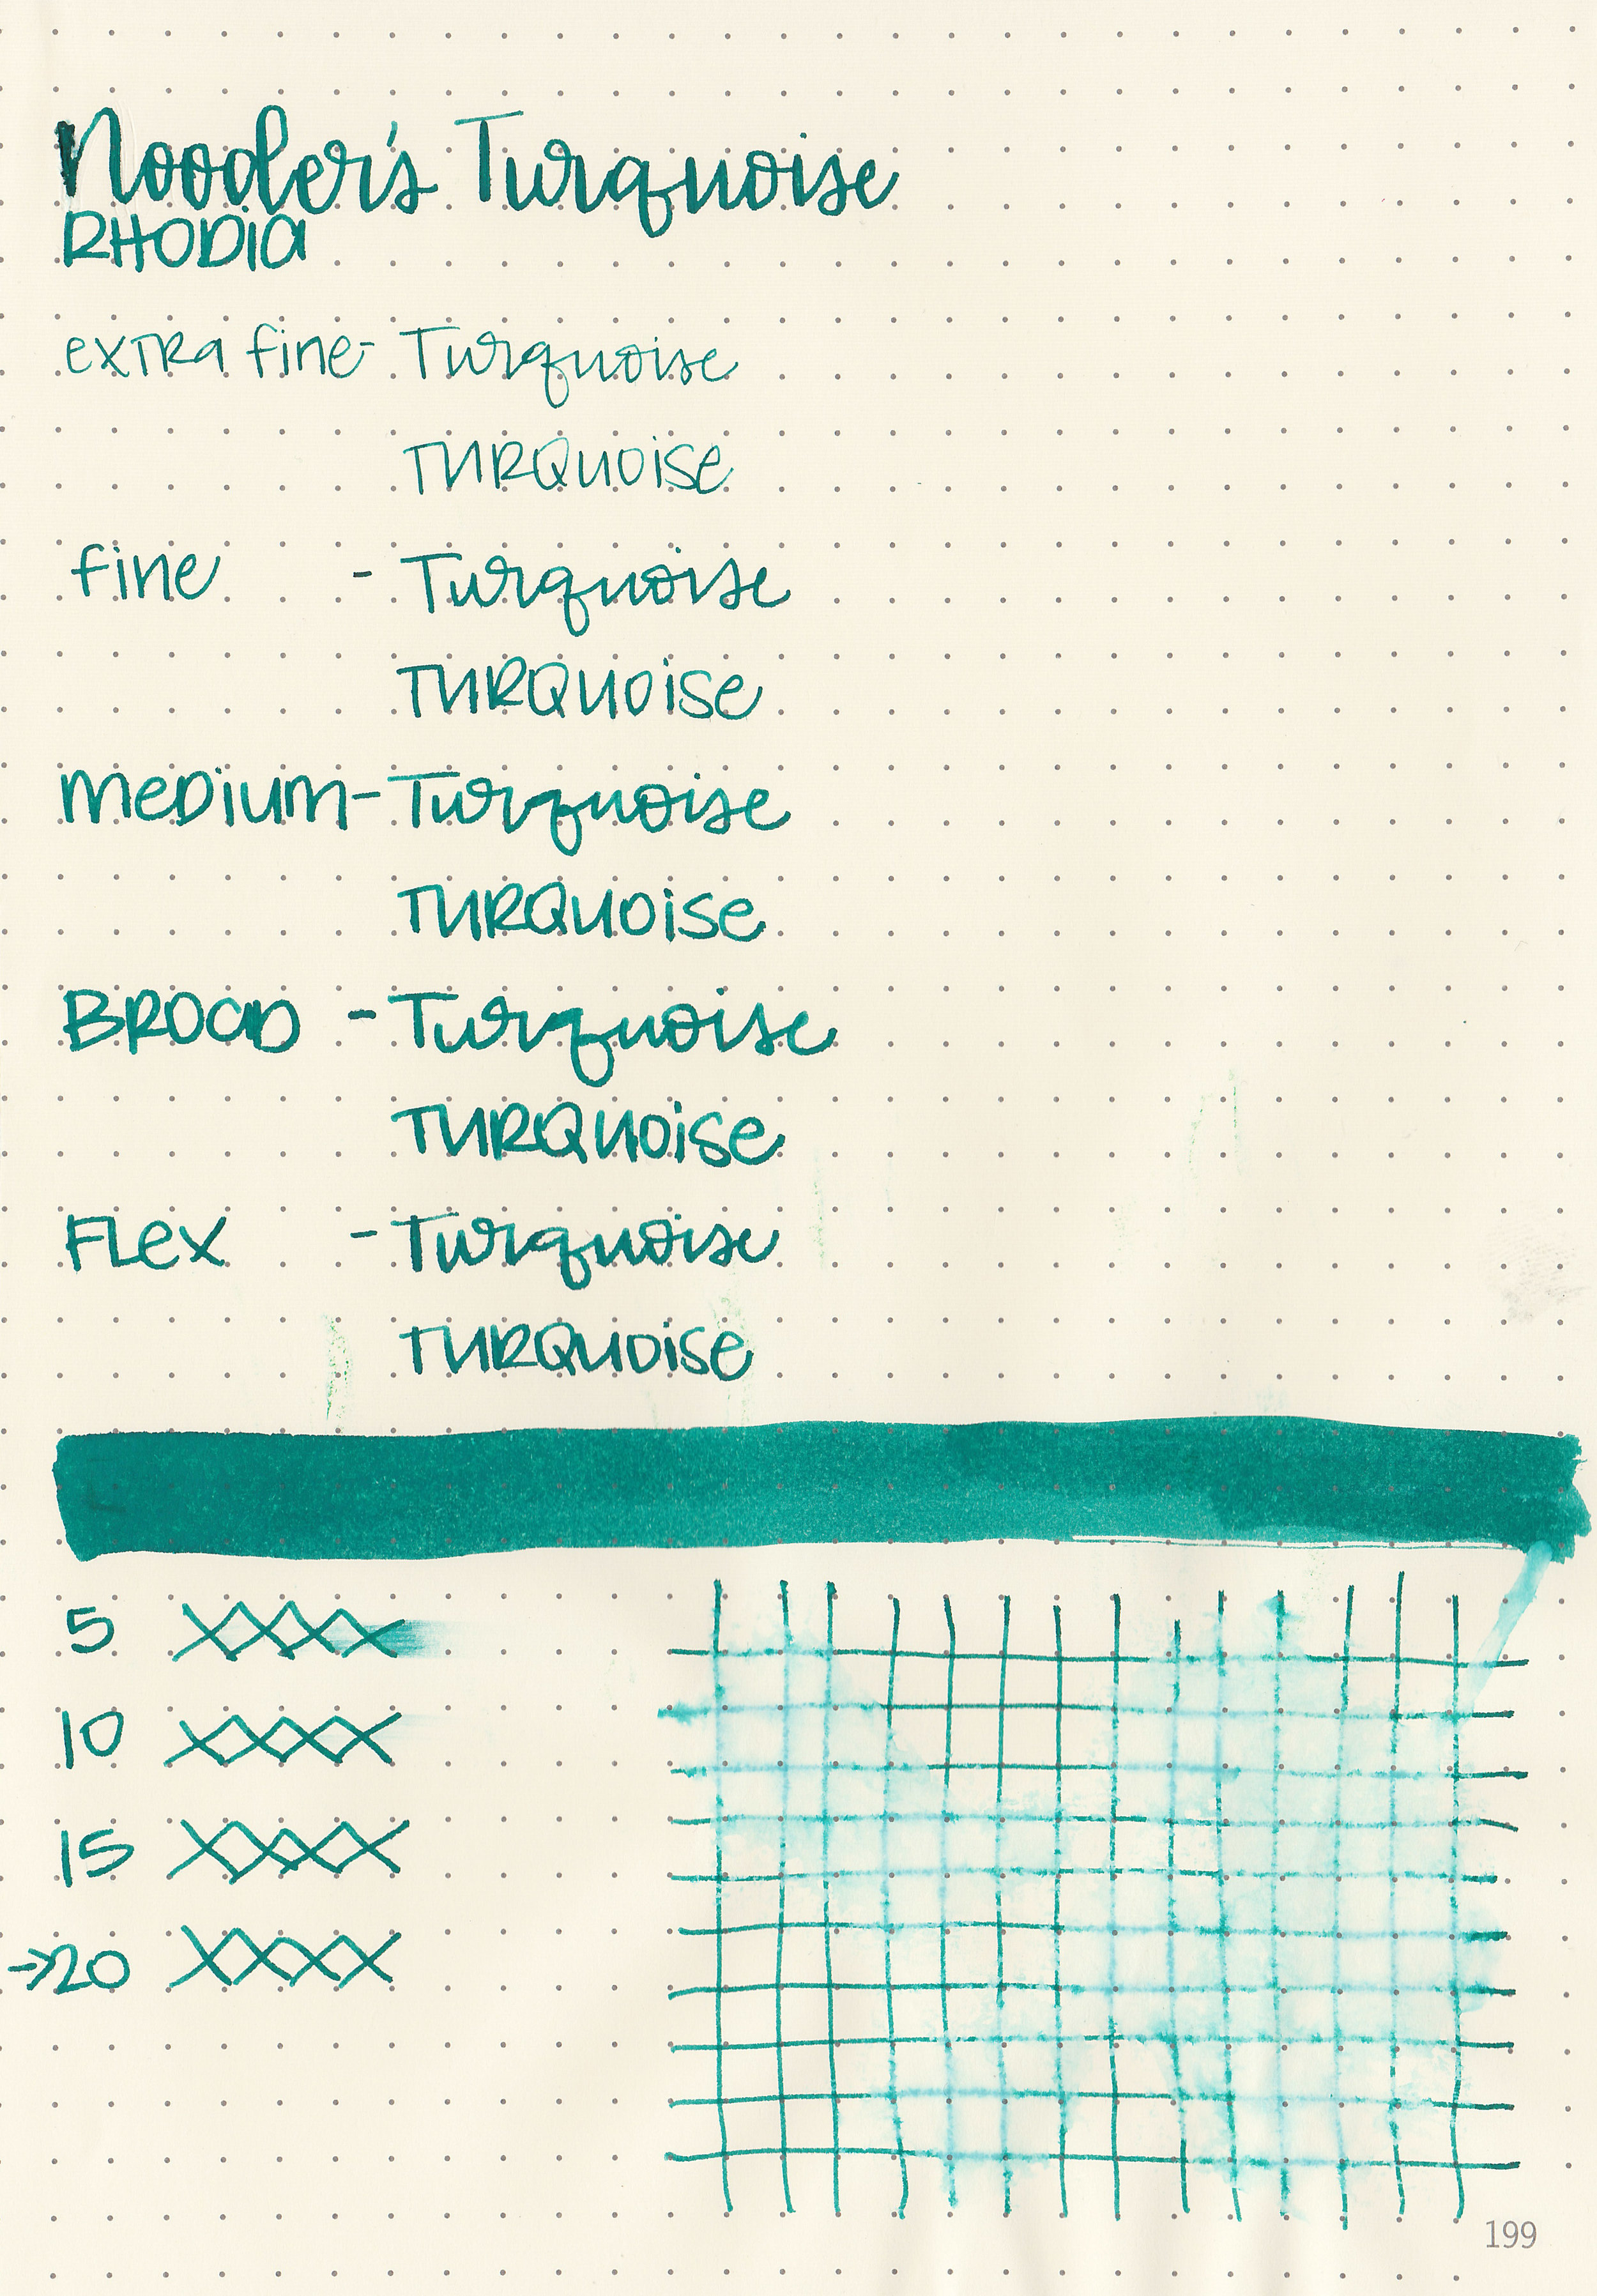 Nooder's Turquoise
RHODIa
exTRa fine- Turquoise
TURQuoise
fine - Turquoise
TURQuoise
meDium- Turquoise
TURQuoise
BROaD - Turquoise
TURQuoise
FLex - Turquoise
TURQuoise
5 XXXX
10 XXXX
15 XXXX
→20 XXXX
199